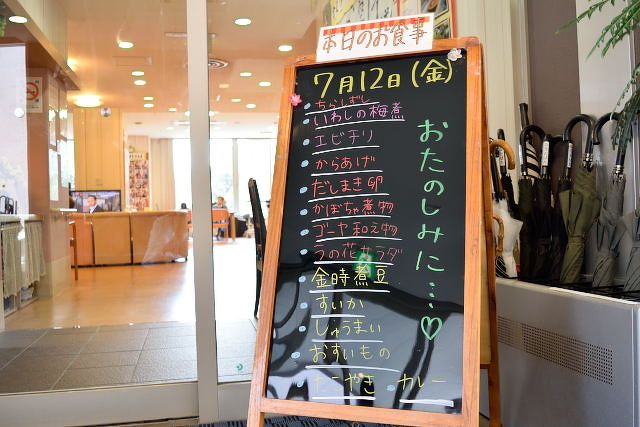 本日のお食事
7月12日(金)
ちらしずし
いわしの梅煮
エビチリ
からあげ
だしまき卵
かぼちゃ煮物
ゴーヤ和え物
うの花サラダ
金時煮豆
すいか
しゅうまい
おすいもの
たこやき カレー
おたのしみに…♡